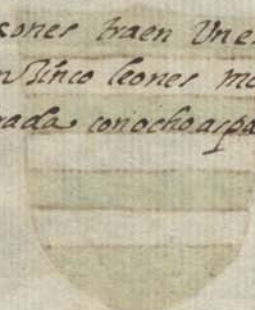 sones traen Un e
n Sinco leones mo
rada con ocho aspa